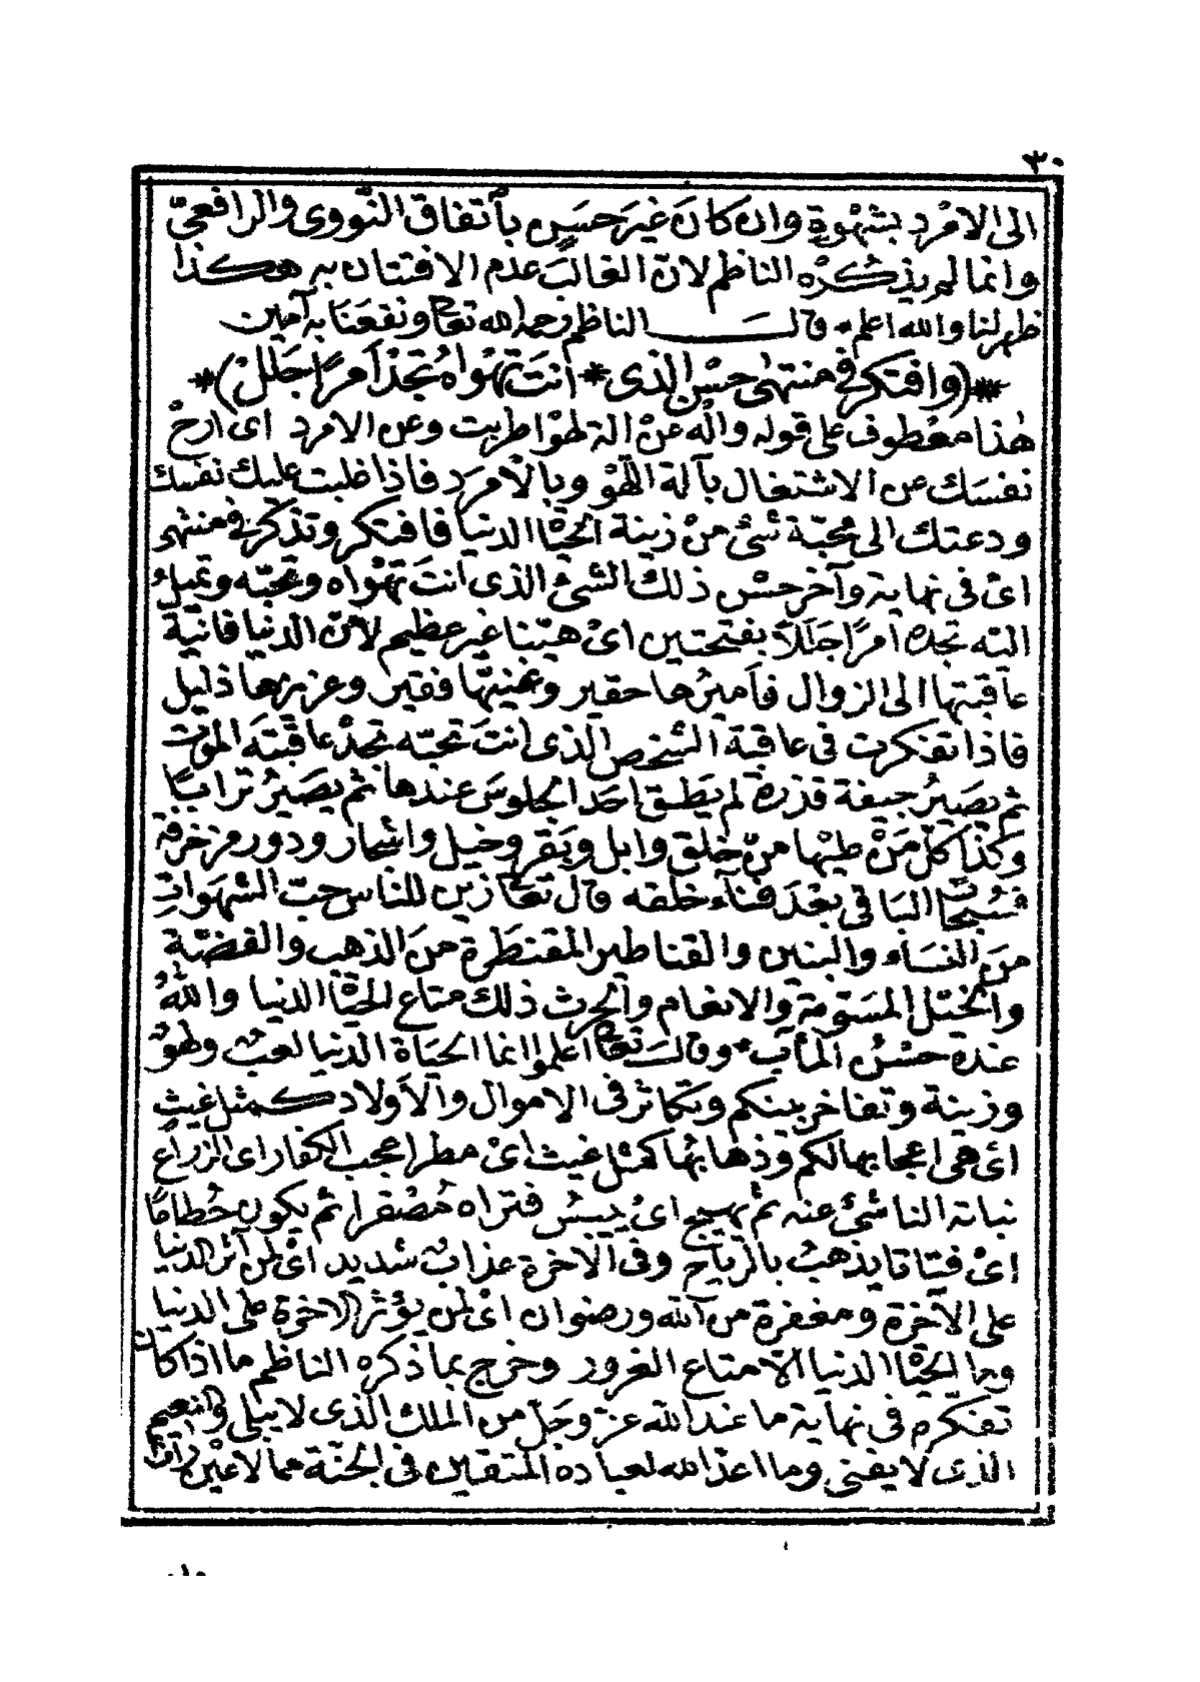 ٣٠
الى الامْرد بشهْوةٍ وان كانَ غيرَ حسَنٍ بأتفاق النّووى والرافعىّ
وانما لم يذكُرْه الناظم لانّ الغالبَ عدم الافتتان به هكذا
ظهر لنا والله اعلم * قال الناظم رحمه الله تعالى ونفعنَا به آمين
*(وافتكر فى منتهى حسْن الذى * انتَ تهْواهُ تجدْ امرًا جَلَلْ)*
هٰذا معْطوف على قوله والْه عنْ الة لهْو اطربت وعن الامرد اى ارحْ
نفسَك عن الاشتغال بآلة اللّهْو وبالامرَد فاذا غلبت عليك نفسك
ودعتك الى محبّة شئ منْ زينة الحيٰاة الدنيا فافتكر وتذكّر فى منتهى
اىْ فى نهاية وآخر حسْن ذلك الشئ الذى انتَ تهْواه وتحبّه وتميلُ
اليه تجده امرًا جَلَلاً بفتحتين اىْ هيّنا غير عظيم لانّ الدنيا فانيَة
عاقبتها الى الزوال فاَميرُها حقير وغنيّها فقير وعزيزها ذليل
فاذا تفكرت فى عاقبة الشخص الذى انتَ تحبّه تجدْ عاقبتَه الموْت
ثم يصيرُ جيفة قذرة لم يَطق احَد الجلوسَ عندها ثم يصَيرُ ترابًا
وكذا كلّ مَنْ عليْها منْ خلق وابل وبَقر وخيل واشجار ودور مزخرفة
فسُبحٰان البَاقى بعْدَ فناَء خلقه قال تعالى زين للناس حبّ الشهوات
منَ النسَاء والبنين والقناطير المقنطَرة منَ الذهب والفضّة
والخيْل المسَوّمة والانعام والحرث ذلك متاع الحيٰاة الدنيا واللهُ
عندهُ حسْنُ المآب * وقال تعالى اعلموا انما الحيَاة الدنيا لعبٌ ولهْوٌ
وزينة وتفاخر بينكم وتكاثر فى الاموال والاَولاد كمثل غيثٍ
اىْ هى اعجابها لكم وذهابُها كمثل غيث اىْ مطر اعجب الكفار اى الزراعَ
نباته الناشئ عنه ثم يهيج اىْ ييبسُ فتراه مُصْفرا ثم يكون حُطامًا
اىْ فتاتا يذهبُ بالرّياح وفى الآخرة عذابٌ شديد اىْ لمن آثر الدنيا
على الآخرة ومغفرة من الله ورضوان اىْ لمن يؤْثر الاخرة على الدنيا
وما الحيٰاة الدنيا الاّ متاع الغرور وخرج بما ذكره الناظم ما اذا كان
تفكره فى نهاية ما عند الله عزّ وجَلّ من الملك الذى لا يبلى والنعيم
الذى لا يفنى وما اعدّ الله لعباده المتقين فى الجنّة مما لا عيْن رأتْ